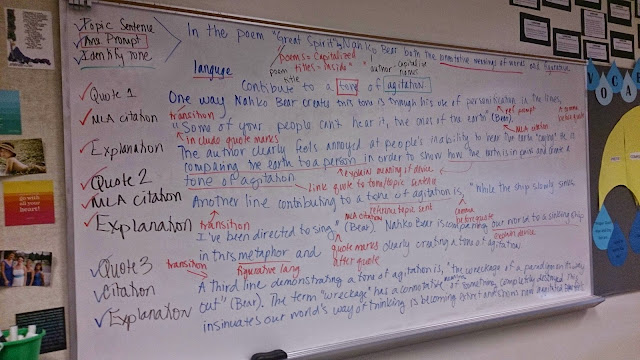 Topic Sentence
Ans Prompt
Identify Tone
In the poem "Great Spirit" by Nahko Bear both the connotative meaning of words and figurative
language
poems = Capitalized
titles = inside " "
author = capitalize names
poem title
contribute to a tone of agitation
Quote 1
MLA citation
Explanation
One way Nahko Bear creates this tone is through his use of personification in the lines,
transition
ref prompt
"Some of your people can't hear it, the ones of the earth" (Bear).
include quote marks
MLA citation
The author clearly feels annoyed at people's inability to hear the earth
comparing the earth to a person in order to show how the earth is in pain and create a
tone of agitation
explain meaning of device
link quote to tone/topic sentence
Quote 2
MLA citation
Explanation
Another line contributing to a tone of agitation is, "While the ship slowly sinks
transition
reference topic sent
MLA citation
comma before quote
I've been directed to sing" (Bear). Nahko Bear is comparing our world to a sinking ship
explain device
in this metaphor and clearly creating a tone of agitation.
quote marks after quote
figurative lang
Quote 3
Citation
Explanation
transition
A third line demonstrating a tone of agitation is, "the wreckage of a paradigm on its way
out" (Bear). The term "wreckage" has a connotative meaning of something completely destroyed. This
insinuates our world's way of thinking is becoming
VOCA